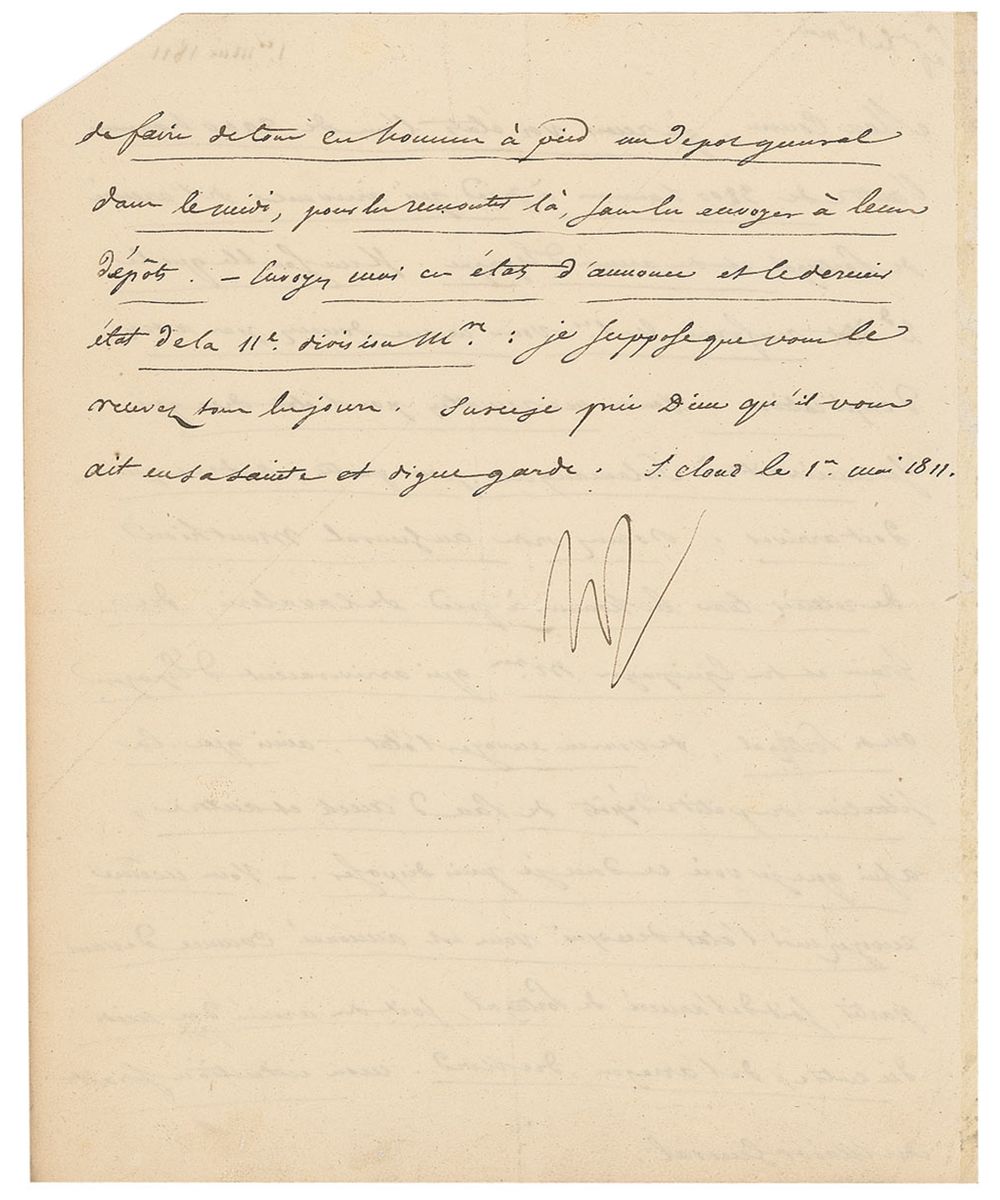 de faire de tous ces hommes à pied un depot general
dans le midi, pour les remonter là, sans les envoyer à leurs
dépôts. – Envoyez moi ces états d'annonce et le dernier
état de la 11e. division Mre. : je suppose que vous le
recevez tous les jours. Sur ce je prie Dieu qu'il vous
ait en sa sainte et digne garde. St. cloud le 1er. mai 1811.
Np